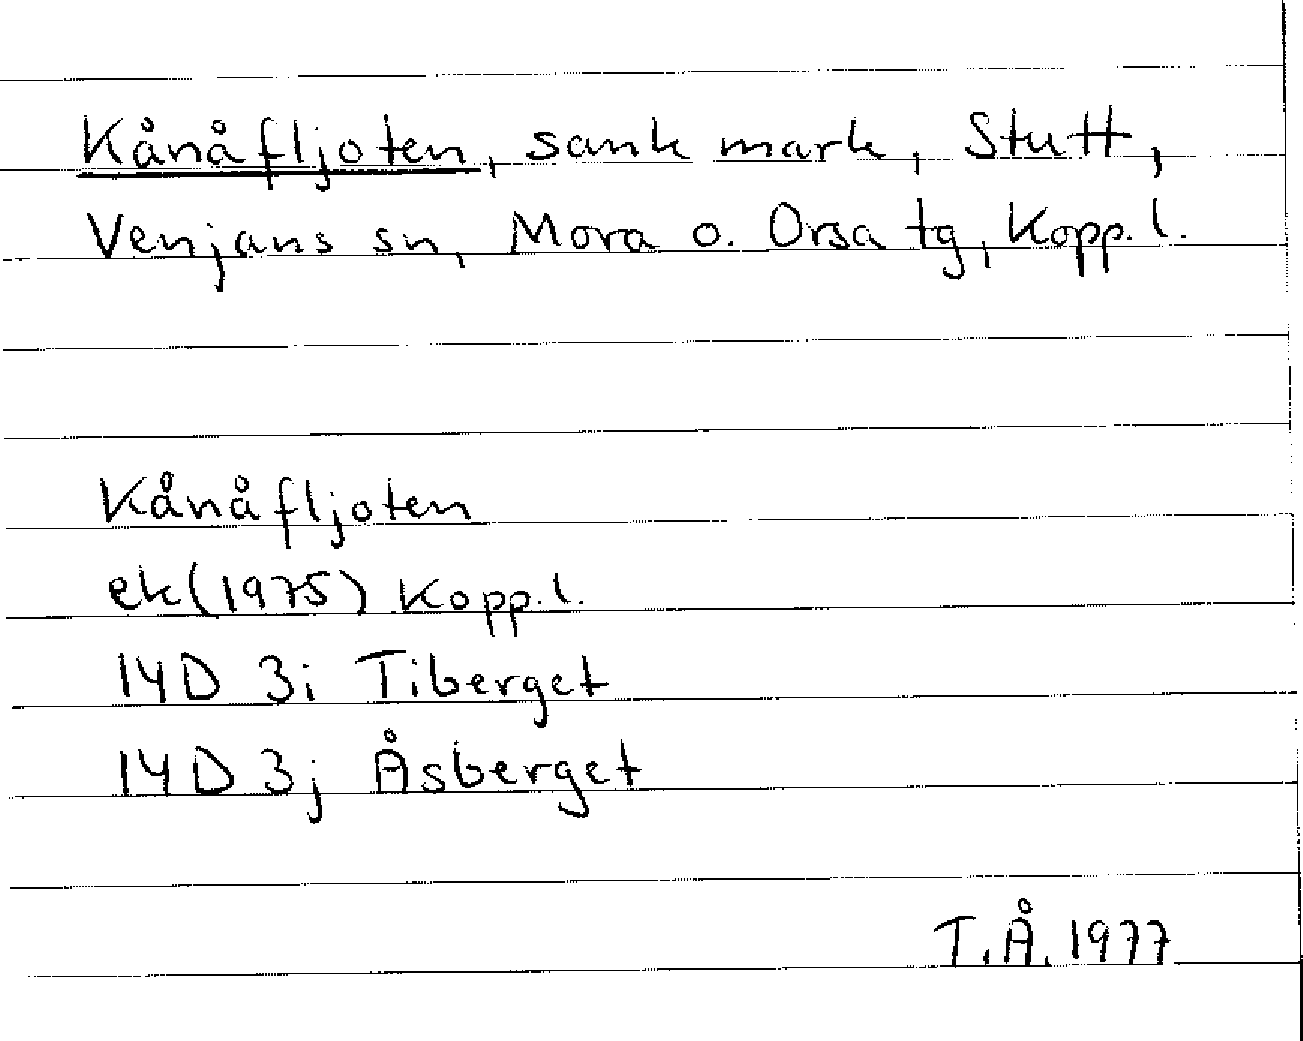 Kånåfljoten, sank mark, Stutt,
Venjans sn, Mora o. Orsa tg, Kopp. l.
Kånåfljoten
ek(1975) Kopp. l.
14D 3i Tiberget
14D 3j Åsberget
T.Å. 1977